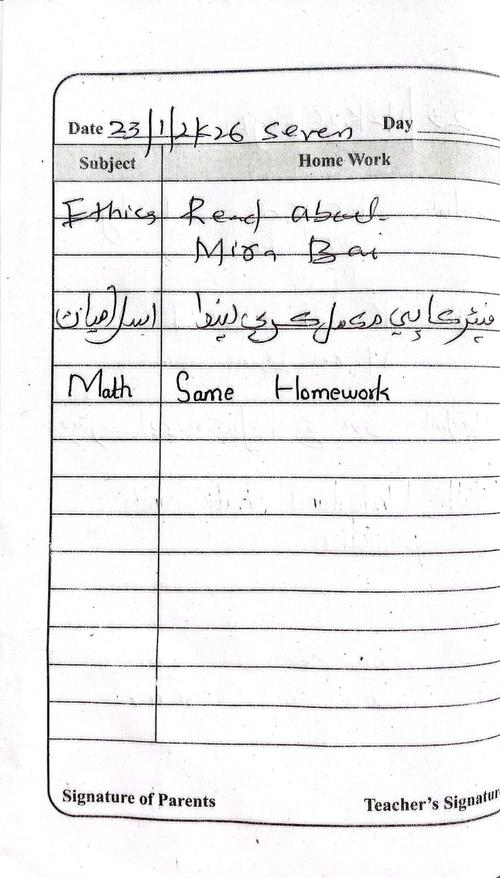 Date 23/1/2k26 seven Day
Subject Home Work
Ethics Read about
Mira Bai
اسلاميات فيئر ڪاپي مڪمل ڪري اينديؤ
Math Same Homework
Signature of Parents Teacher's Signatur